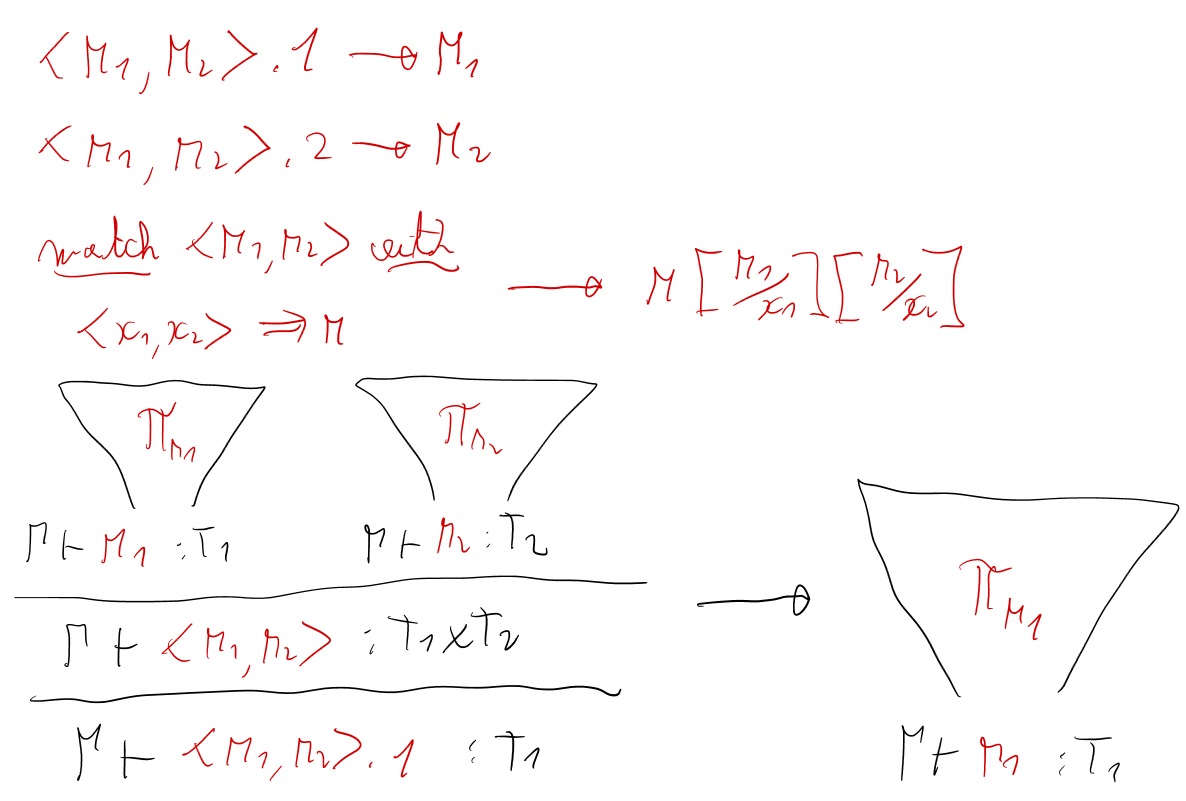 <M₁, M₂>.1 —o M₁
<M₁, M₂>.2 —o M₂
match <M₁, M₂> with
<x₁, x₂> ⇒ M —o M [M₁/x₁] [M₂/x₂]
Π_M₁ Π_M₂
Γ ⊢ M₁ : T₁ Γ ⊢ M₂ : T₂
Γ ⊢ <M₁, M₂> : T₁ × T₂ —o Π_M₁
Γ ⊢ <M₁, M₂>.1 : T₁ Γ ⊢ M₁ : T₁